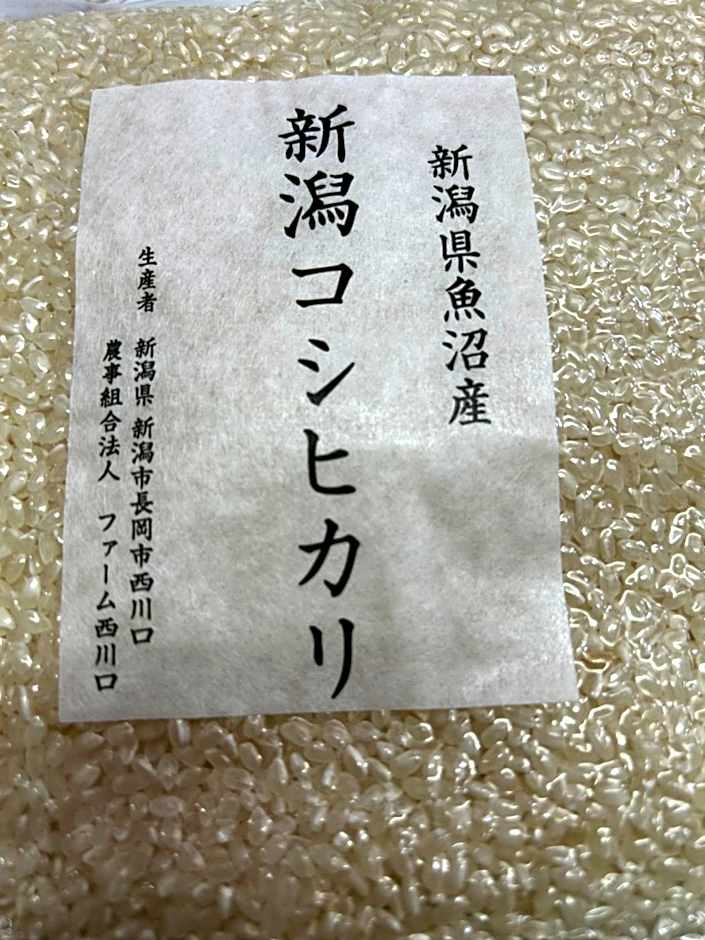 新潟県魚沼産
新潟コシヒカリ
生産者 新潟県 新潟市長岡市西川口
農事組合法人 ファーム西川口